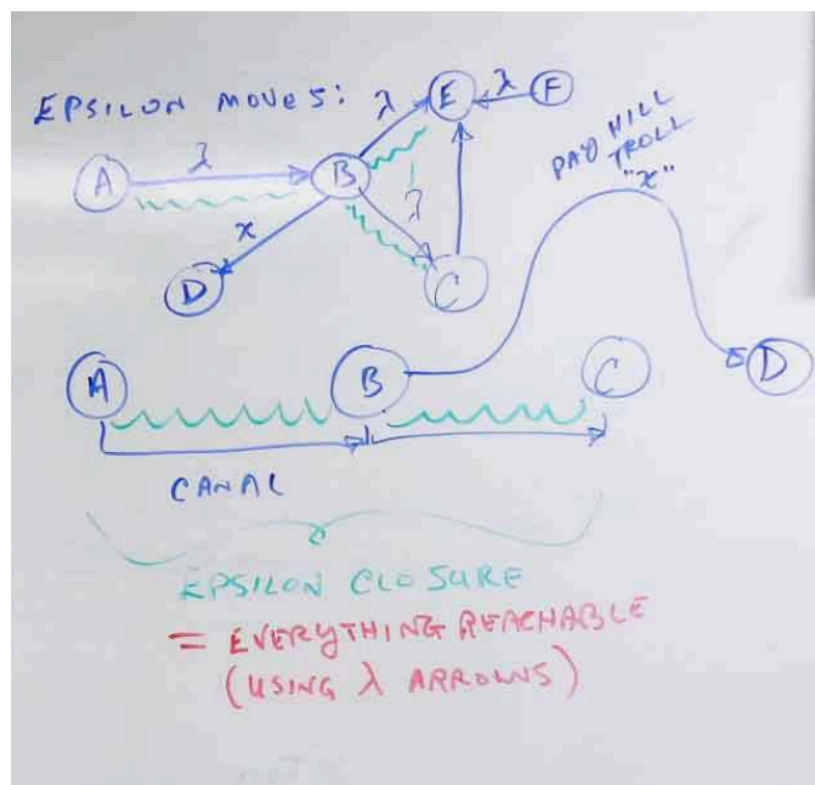 EPSILON MOVES:
λ
E
λ
F
A
λ
B
λ
x
D
C
PAY HILL
TROLL
"x"
A
B
C
D
CANAL
EPSILON CLOSURE
= EVERYTHING REACHABLE
(USING λ ARROWS)